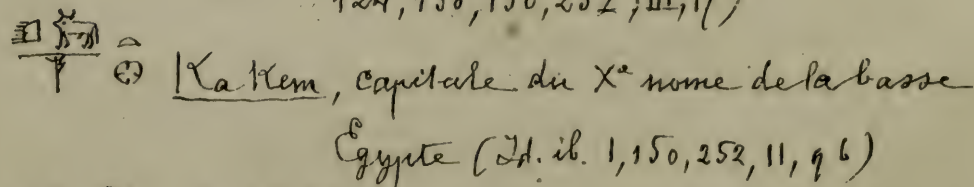 124, 150, 150, 252, III, 17,
Ka Kem, capitale du Xe nome de la basse
Égypte (Id. ib. 1, 150, 252, 11, 96)